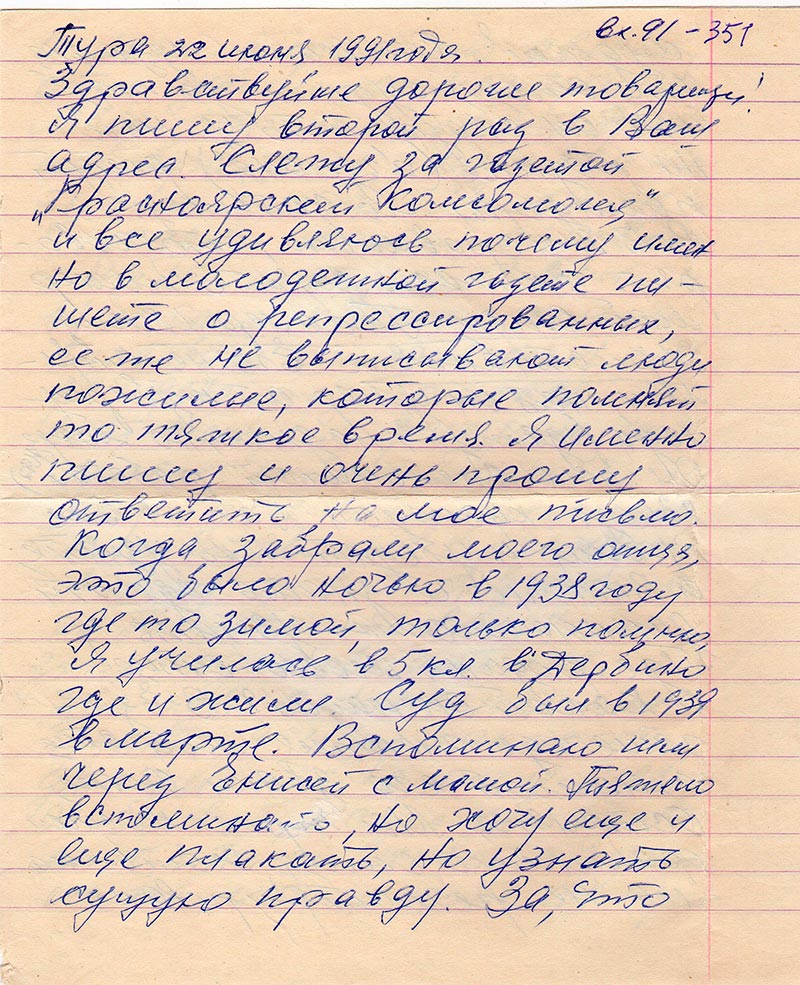 вх. 91-351
Тура 22 июня 1991 года.
Здравствуйте дорогие товарищи!
Я пишу второй раз в Ваш
адрес. Слежу за газетой
„Красноярский Комсомолец"
и все удивляюсь почему имен
но в молодежной газете пи-
шете о репрессированных,
ее же не выписывают люди
пожилые, которые помнят
то тяжкое время. Я именно
пишу и очень прошу
ответить на мое письмо.
Когда забрали моего отца,
это было ночью в 1938 году
где то зимой, только помню,
Я училась в 5 кл. в Дербино
где и жили Суд был в 1939
в марте. Вспоминаю шли
через Енисей с мамой. Тяжело
вспоминать, но хочу еще и
еще плакать, но узнать
сущую правду. За, что